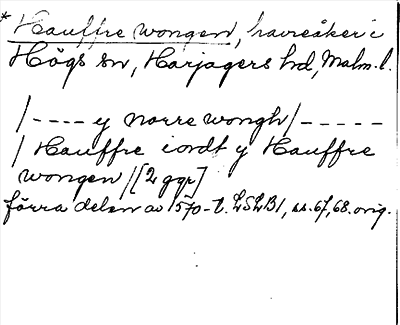 * Hauffre wongen, havreåker i
Högs sn, Harjagers hd, Malm. l.
/---- y norre wongh/-----
/ Hauffre iordt y Hauffre
wongen /[2 ggr]
förra delen av 1570-t. LSLB1, ss. 67, 68. orig.